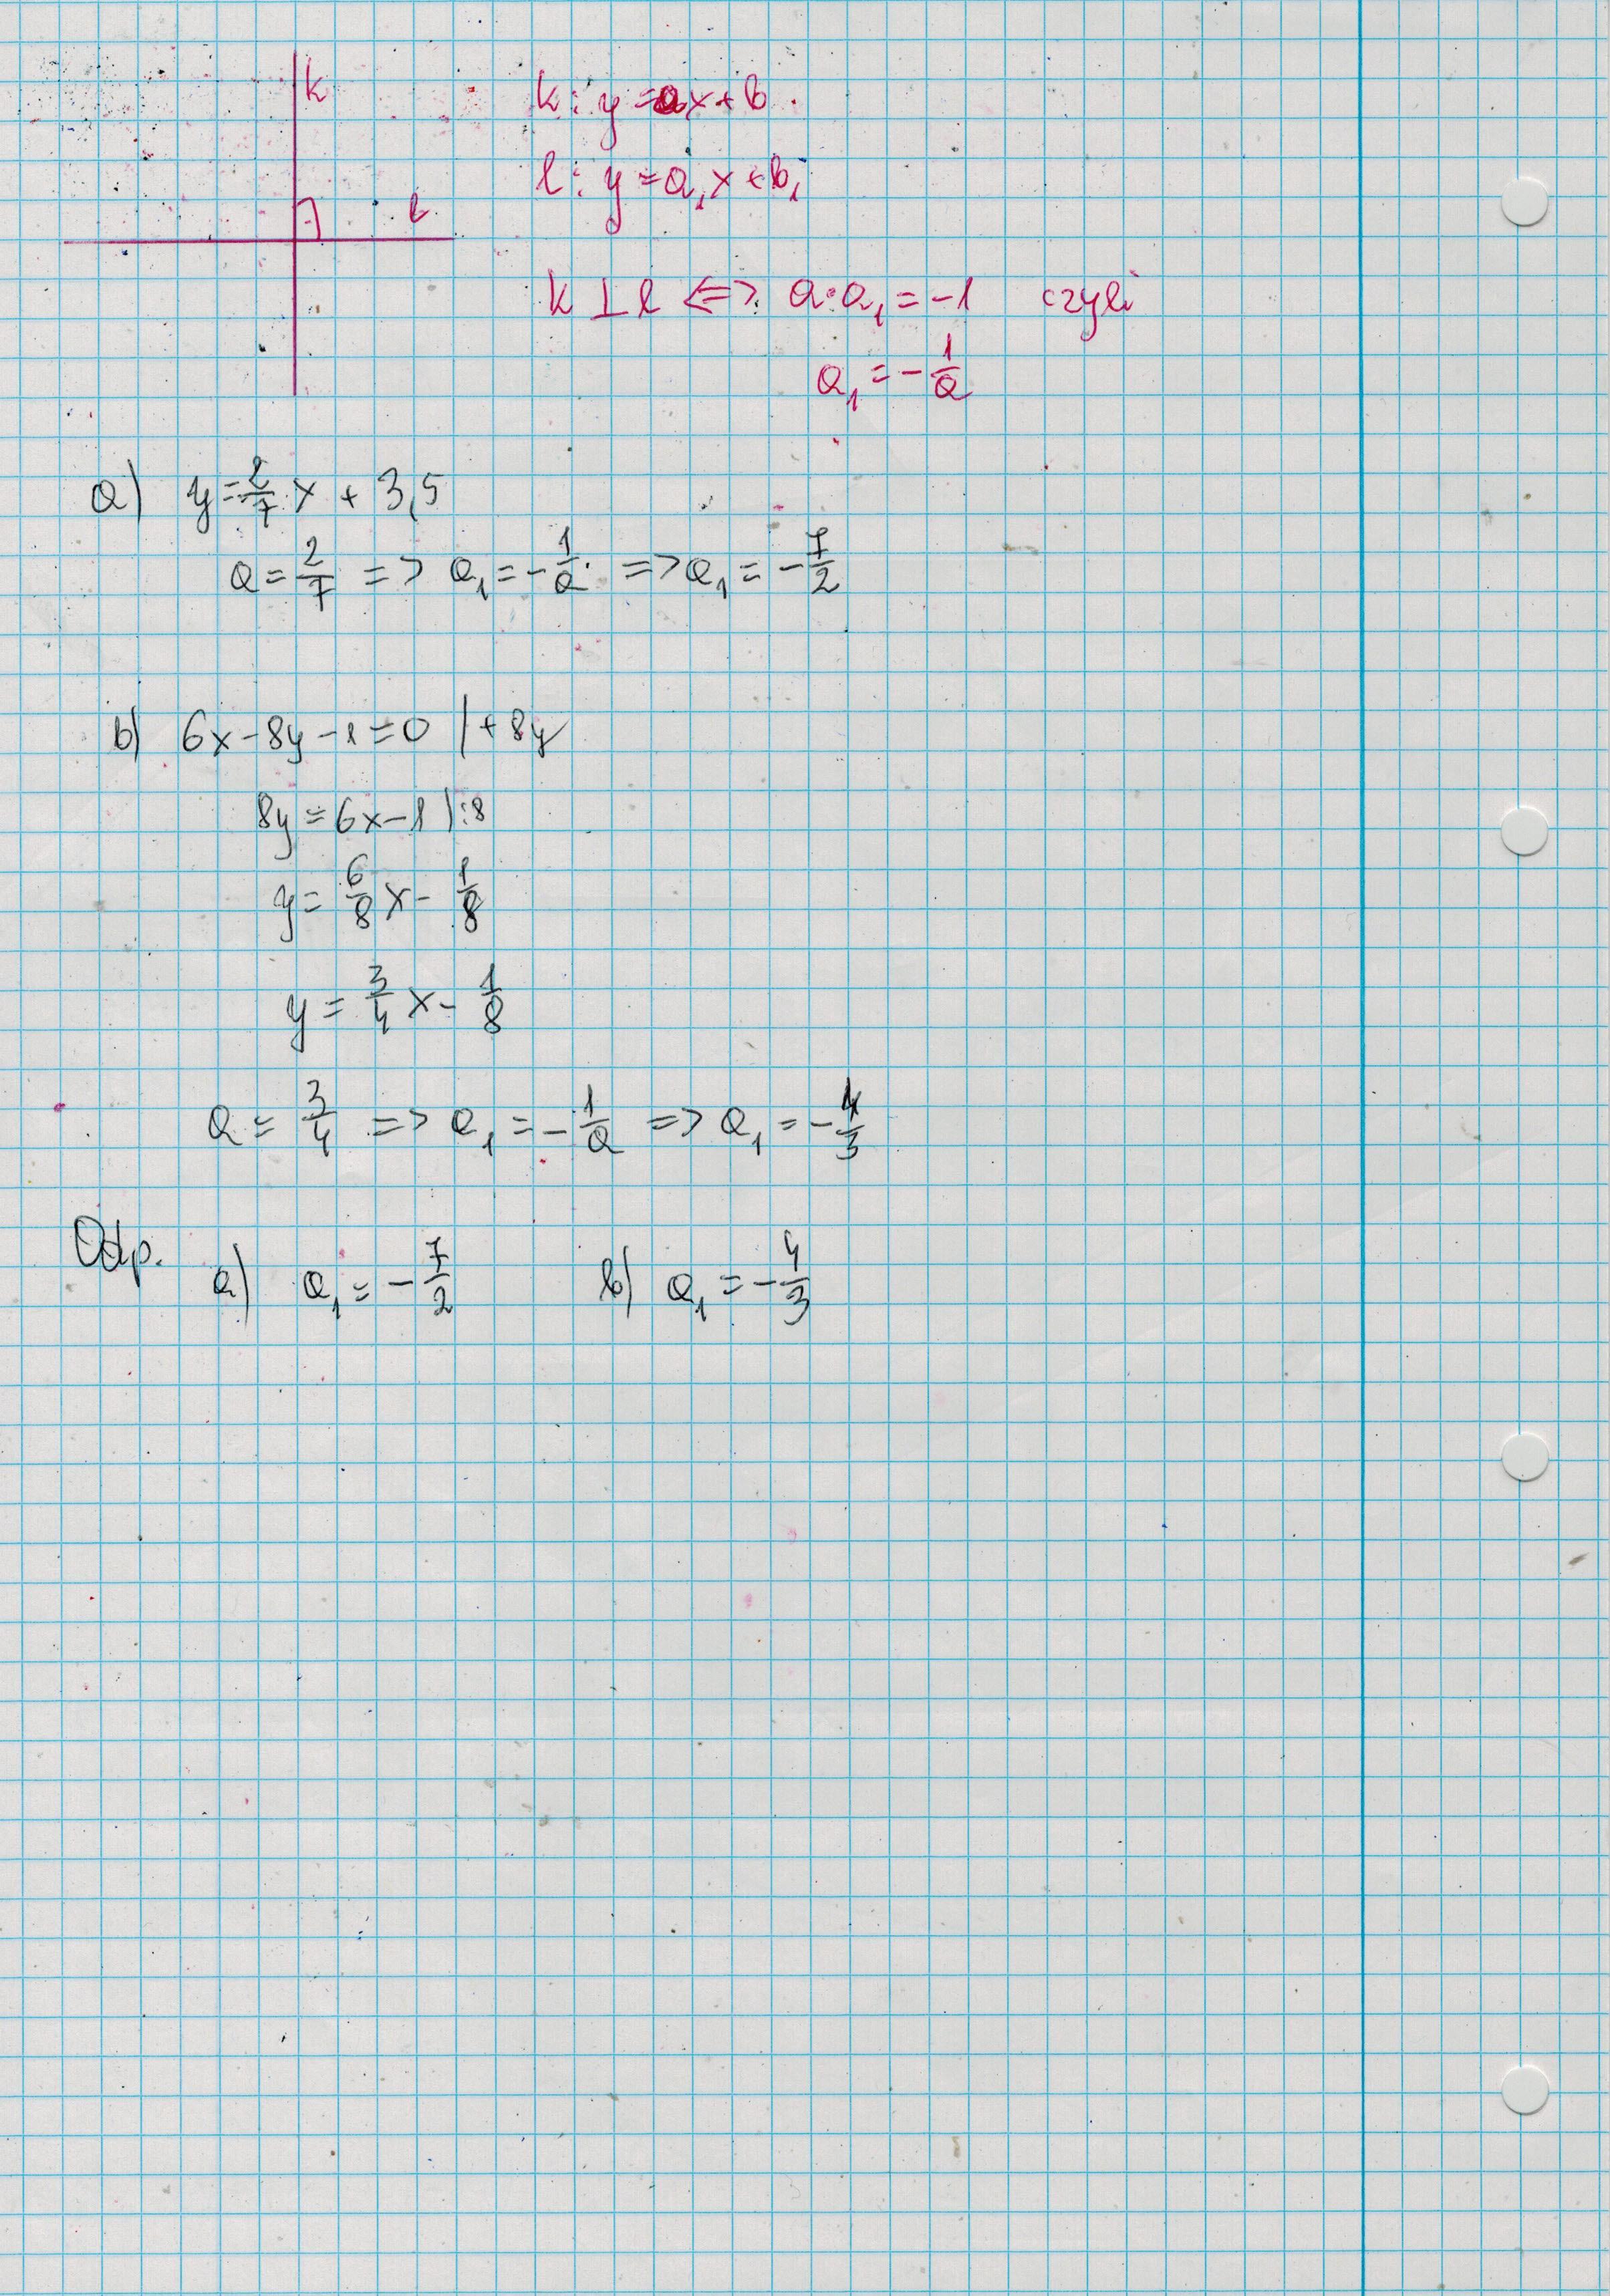 k
l
k: y = ax + b
l: y = a₁x + b₁
k ⊥ l <=> a·a₁ = -1 czyli
a₁ = -1/a
a) y = 2/7 x + 3,5
a = 2/7 => a₁ = -1/a => a₁ = -7/2
b) 6x - 8y - 1 = 0 | +8y
8y = 6x - 1 | :8
y = 6/8 x - 1/8
y = 3/4 x - 1/8
a = 3/4 => a₁ = -1/a => a₁ = -4/3
Odp.
a) a₁ = -7/2 b) a₁ = -4/3